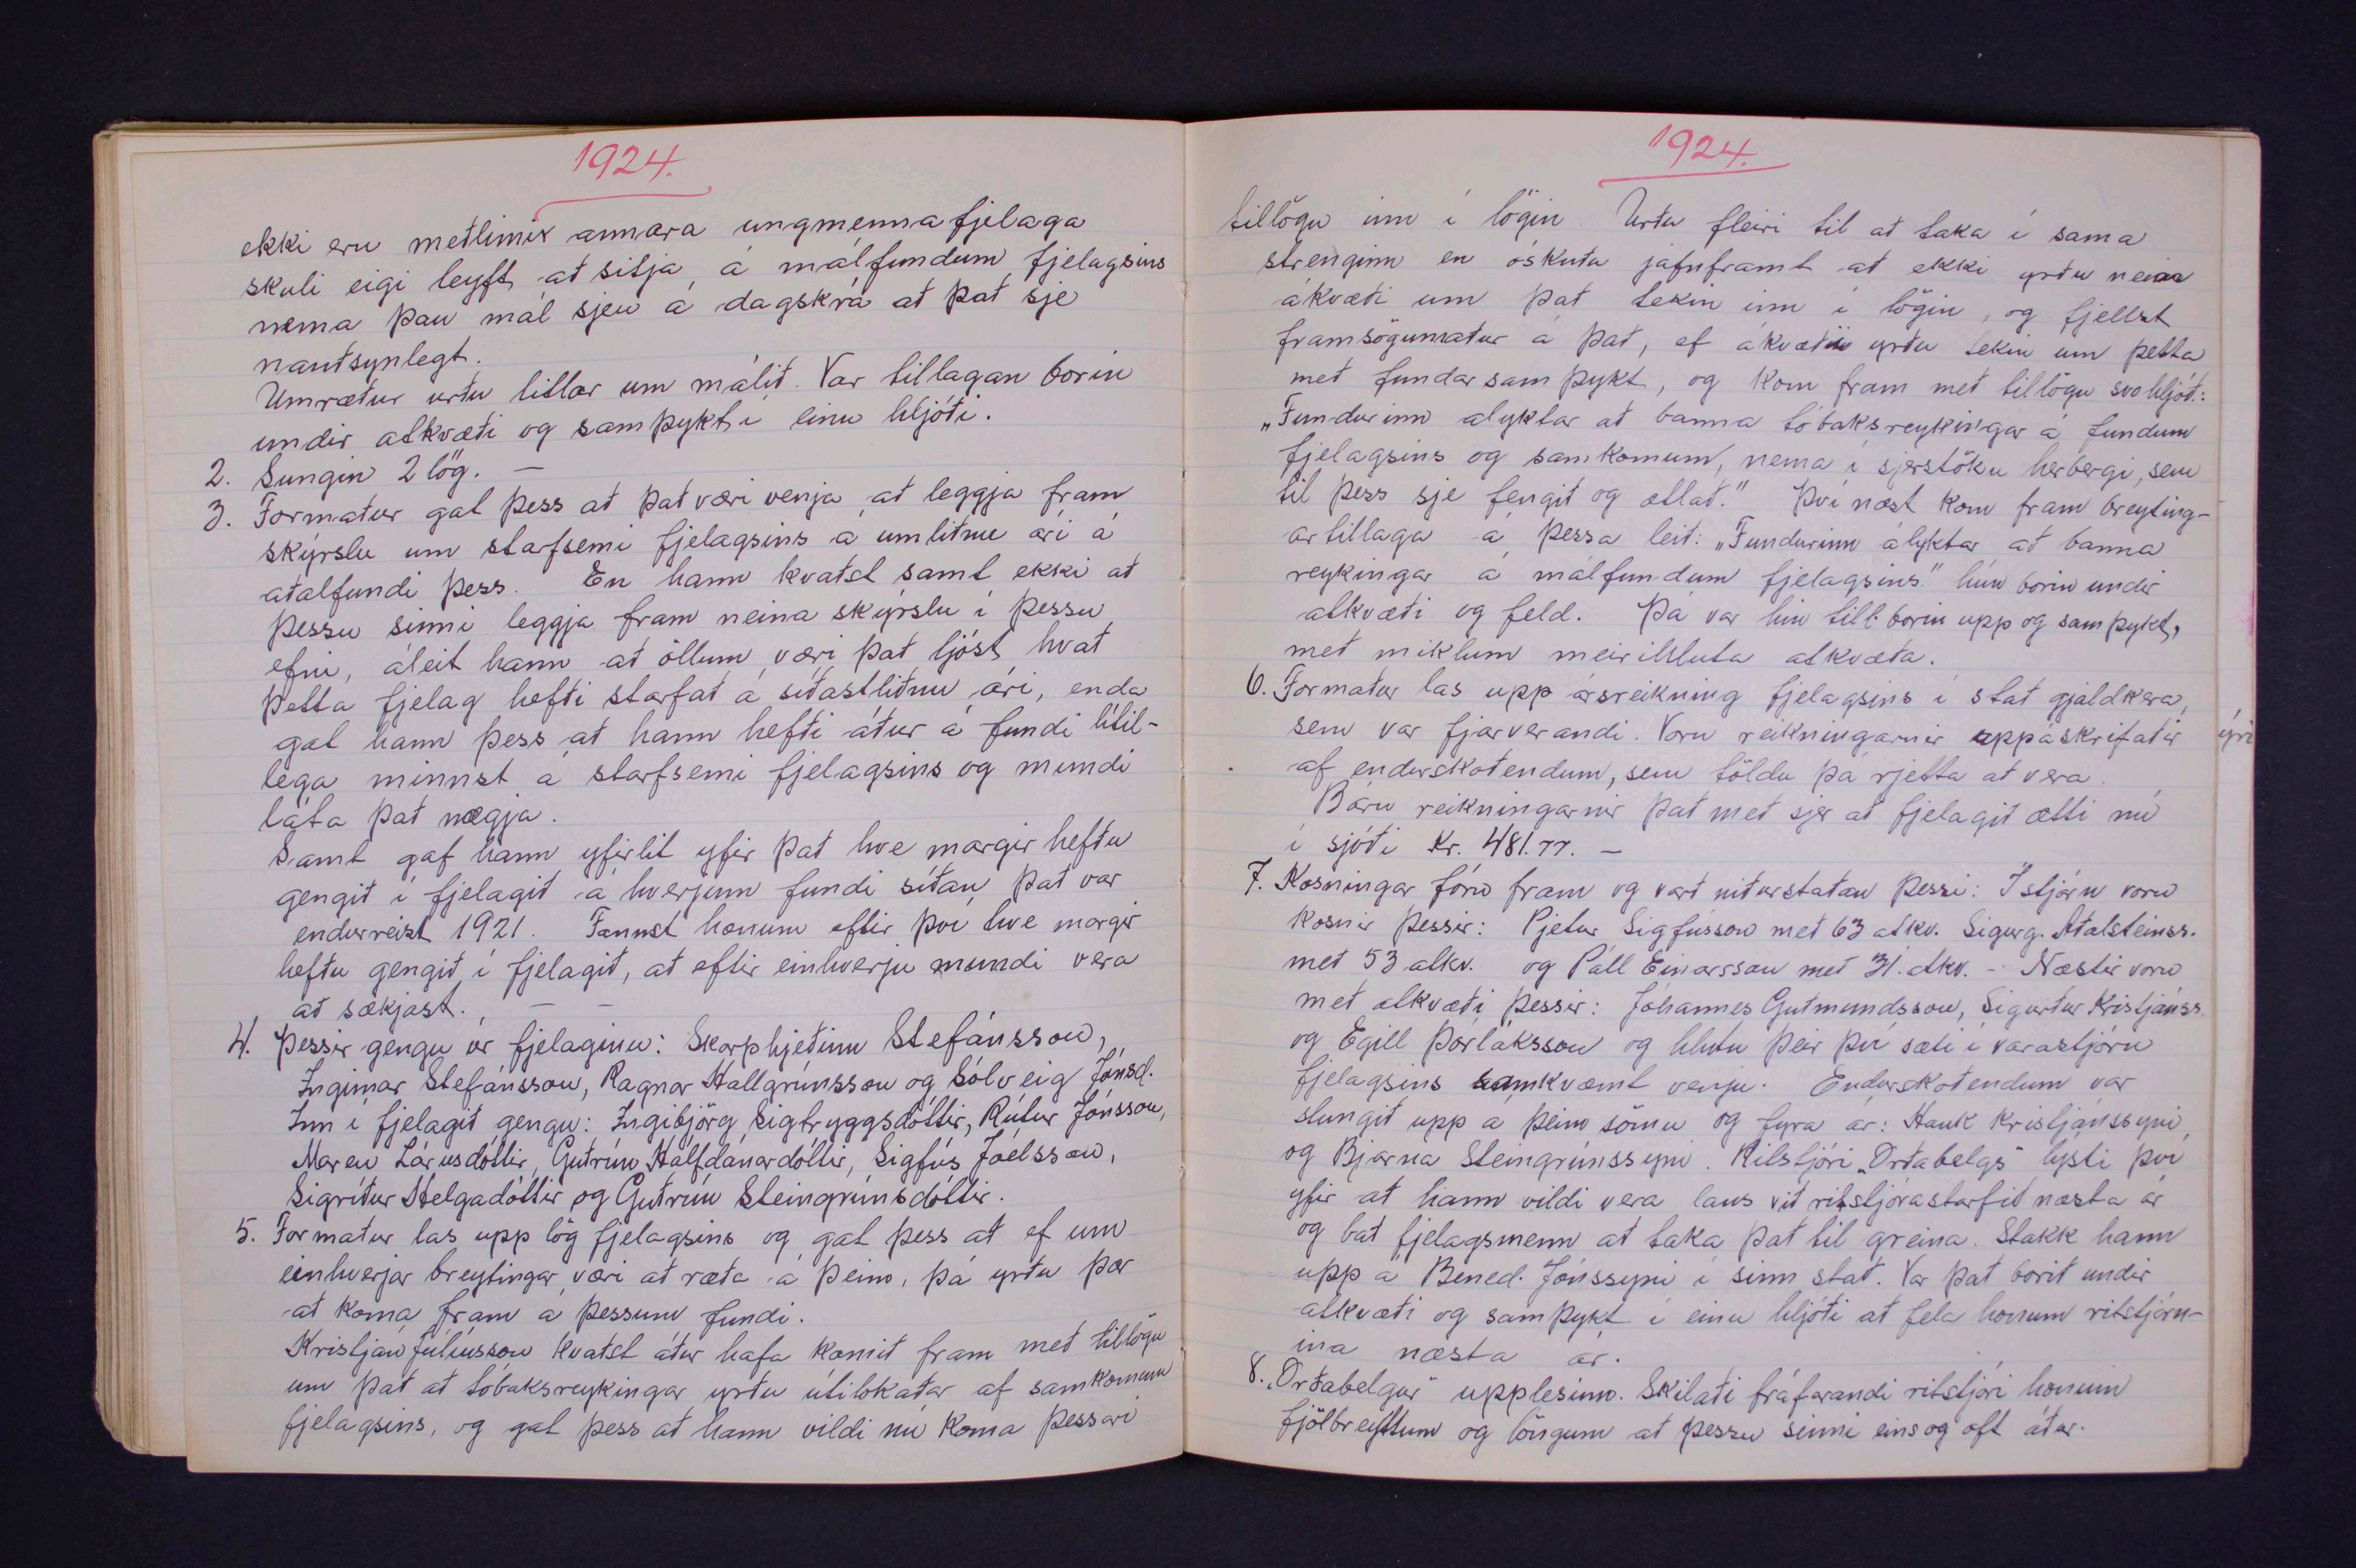 1924.
ekki eru meðlimir annara ungmennafjelaga
skuli eigi leyft að sitja á málfundum fjelagsins
nema þau mál sjeu á dagskrá að það sje
nauðsynlegt.
Umræður urðu litlar um málið. Var tillagan borin
undir atkvæði og samþykt í einu hljóði.
2. Sungin 2 lög. —
3. Formaður gat þess að það væri venja að leggja fram
skýrslu um starfsemi fjelagsins á umliðnu ári á
aðalfundi þess. En hann kvaðst samt ekki að
þessu sinni leggja fram neina skýrslu í þessu
efni, áleit hann að öllum væri það ljóst hvað
þetta fjelag hefði starfað á síðastliðnu ári, enda
gat hann þess að hann hefði áður á fundi lítil-
lega minnst á starfsemi fjelagsins og mundi
láta það nægja.
Samt gaf hann yfirlit yfir það hve margir hefðu
gengið í fjelagið á hverjum fundi síðan það var
endurreist 1921. Fannst honum eftir því hve margir
hefðu gengið í fjelagið, að eftir einhverju mundi vera
að sækjast. — —
4. Þessir gengu úr fjelaginu: Skarphjeðinn Stefánsson,
Ingimar Stefánsson, Ragnar Hallgrímsson og Sólveig Jónsd.
Inn í fjelagið gengu: Ingibjörg Sigtryggsdóttir, Rútur Jónsson,
Maren Lárusdóttir, Guðrún Hálfdánardóttir, Sigfús Jóelsson,
Sigríður Helgadóttir og Guðrún Steingrímsdóttir.
5. Formaður las upp lög fjelagsins og gat þess að ef um
einhverjar breytingar væri að ræða á þeim, þá yrðu þær
að koma fram á þessum fundi.
Kristján Júlíusson kvaðst áður hafa komið fram með tillögu
um það að tóbaksreykingar yrðu útilokaðar af samkomum
fjelagsins, og gat þess að hann vildi nú koma þessari
1924.
tillögu inn í lögin. Urðu fleiri til að taka í sama
strenginn en óskuðu jafnframt að ekki yrðu nein
ákvæði um það tekin inn í lögin, og fjellst
framsögumaður á það, ef ákvæði yrðu tekin um þetta
með fundarsamþykt, og kom fram með tillögu svohljóð.:
„Fundurinn alyktar að banna tóbaksreykingar á fundum
fjelagsins og samkomum, nema í sjerstöku herbergi, sem
til þess sje fengið og ætlað." Því næst kom fram breyting-
artillaga á þessa leið: „Fundurinn ályktar að banna
reykingar á málfundum fjelagsins." hún borin undir
atkvæði og feld. Þá var hin till. borin upp og samþykt,
með miklum meirihluta atkvæða.
6. Formaður las upp ársreikning fjelagsins í stað gjaldkera,
sem var fjarverandi. Voru reikningarnir uppáskrifaðir
af endurskoðendum, sem töldu þá rjetta að vera.
Báru reikningarnir það með sjer að fjelagið ætti nú
í sjóði Kr. 481.77. —
7. Kosningar fóru fram og varð niðurstaðan þessi: Í stjórn voru
kosnir þessir: Pjetur Sigfússon með 63 atkv. Sigurg. Aðalsteinss.
með 53 atkv. og Páll Einarsson með 31. atkv. - Næstir voru
með atkvæði þessir: Jóhannes Guðmundsson, Sigurður Kristjánss.
og Egill Þorláksson og hlutu þeir því sæti í varastjórn
fjelagsins samkvæmt venju. Endurskoðendum var
stungið upp á þeim sömu og fyra ár: Hauk Kristjánssyni,
og Bjarna Steingrímssyni. Ritstjóri „Orðabelgs" lýsti því
yfir að hann vildi vera laus við ritstjórastarfið næsta ár
og bað fjelagsmenn að taka það til greina. Stakk hann
upp á Bened. Jónssyni í sinn stað. Var það borið undir
atkvæði og samþykt í einu hljóði að fela honum ritstjórn-
ina næsta ár.
8. „Orðabelgur" upplesinn. Skilaði fráfarandi ritstjóri honum
fjölbreyttum og löngum að þessu sinni eins og oft áður.